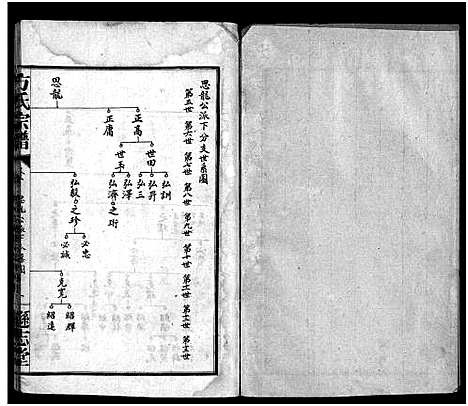 思龍公派下分支世系圖
第五世 第六世 第七世 第八世 第九世 第十世 第十一世 第十二世 第十三世
思龍
正萬
正庸
世田
世玉
弘訓
弘昇
弘三
弘澤
弘濟
弘毅
之珩
之珍
必忠
必誠
克寬
紹輝
紹遠
方氏宗譜